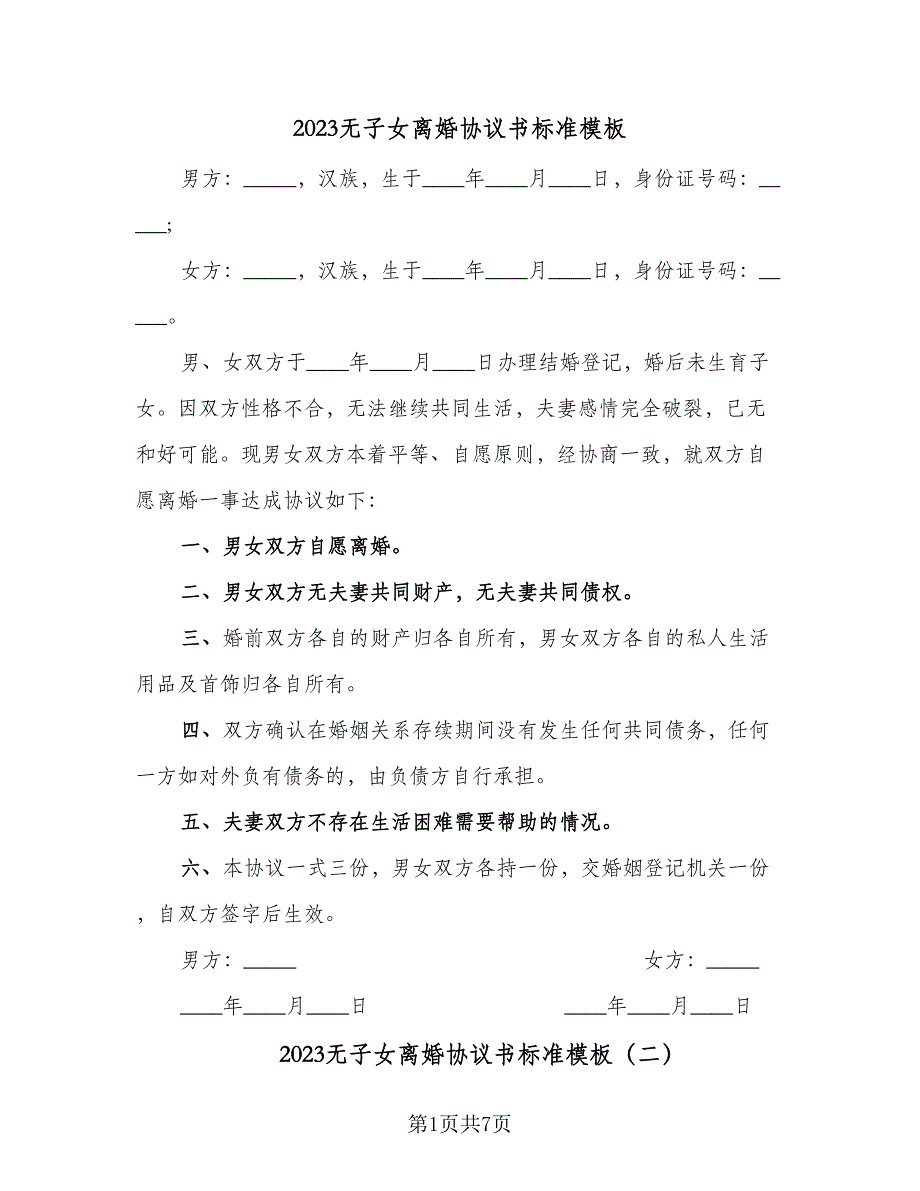 2023无子女离婚协议书标准模板
男方：_____，汉族，生于____年____月____日，身份证号码：__
___;
女方：_____，汉族，生于____年____月____日，身份证号码：__
___。
男、女双方于____年____月____日办理结婚登记，婚后未生育子
女。因双方性格不合，无法继续共同生活，夫妻感情完全破裂，已无
和好可能。现男女双方本着平等、自愿原则，经协商一致，就双方自
愿离婚一事达成协议如下：
一、男女双方自愿离婚。
二、男女双方无夫妻共同财产，无夫妻共同债权。
三、婚前双方各自的财产归各自所有，男女双方各自的私人生活
用品及首饰归各自所有。
四、双方确认在婚姻关系存续期间没有发生任何共同债务，任何
一方如对外负有债务的，由负债方自行承担。
五、夫妻双方不存在生活困难需要帮助的情况。
六、本协议一式三份，男女双方各持一份，交婚姻登记机关一份
，自双方签字后生效。
男方：_____ 女方：_____
____年____月____日 ____年____月____日
2023无子女离婚协议书标准模板（二）
第1页共7页